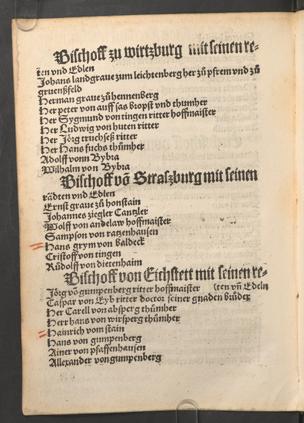 Bischoff zu wirtzburg mit seinen re-
tẽn vnd Edlen
Johans landgraue zum leichtenberg her zů pfrem vnd zů
gruenßfeld
Herman graue zů hennenberg
Her peter von auffsas bropst vnd thumher
Her Sygmund von tingen ritter hoffmaister
Her Ludwig von huten ritter
Her Jörg truchseß ritter
Her Hans fuchs thůmher
Adolff vonn Bybra
Wilhalm von Bybra
Bischoff võ Straſzburg mit seinen
rådten vnd Edlen
Ernst graue zů honstain
Johannes ziegler Cantzler
Wolff von andelaw hoffmaister
Sampson von ratzenhausen
Hans grym von baldeck
Cristoff von tingen
Růdolff von dietenhaim
Bischoff von Eichstett mit seinen re-
Jörg võ gumpenberg ritter hoffmaister (ten vñ Edeln
Caspar von Eyb ritter doctor seiner gnaden brůder
Her Carell von absperg thůmher
Herr hans von wirsperg thůmher
Hainrich vom stain
Hans von gumpenberg
Ainer von pfaffenhausen
Allexander von gumpenberg